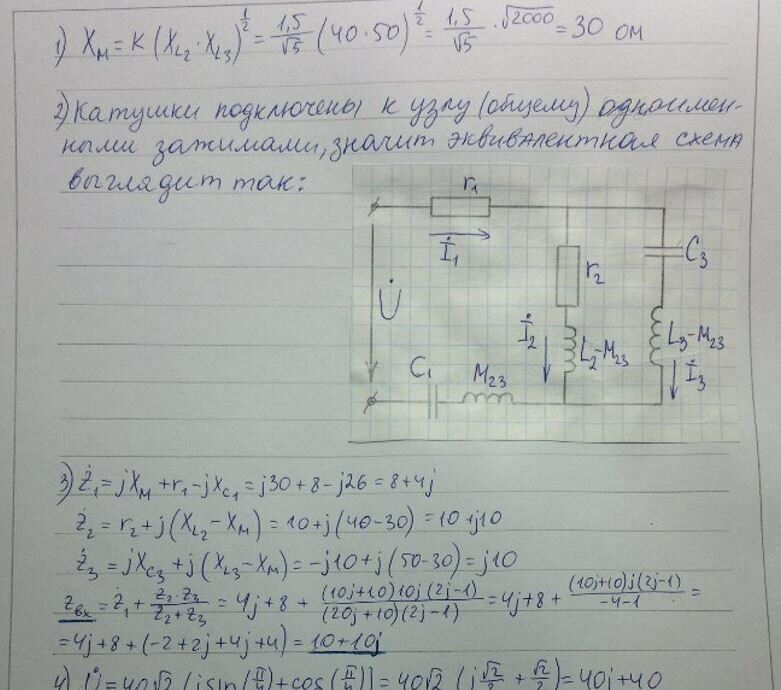 1) X_M = K (X_L2 · X_L3)^(1/2) = 1,5/√5 (40·50)^(1/2) = 1,5/√5 · √2000 = 30 ом
2) Катушки подключены к узлу (общему) одноимен-
ными зажимами, значит эквивалентная схема
выглядит так:
r₁
İ₁
C₃
r₂
U̇
İ₂
L₂-M₂₃
L₃-M₂₃
İ₃
C₁
M₂₃
3) Ż₁ = jX_M + r₁ - jX_C1 = j30 + 8 - j26 = 8 + 4j
Ż₂ = r₂ + j(X_L2 - X_M) = 10 + j(40-30) = 10 + j10
Ż₃ = jX_C3 + j(X_L3 - X_M) = -j10 + j(50-30) = j10
Z_вх = Ż₁ + (Z₂·Z₃)/(Z₂+Z₃) = 4j+8 + ((10j+10)10j(2j-1))/((20j+10)(2j-1)) = 4j+8 + ((10j+10)j(2j-1))/(-4-1) =
= 4j+8 + (-2+2j+4j+4) = 10+10j
4) U̇ = 40√2 (j sin(π/4) + cos(π/4)) = 40√2 (j √2/2 + √2/2) = 40j+40